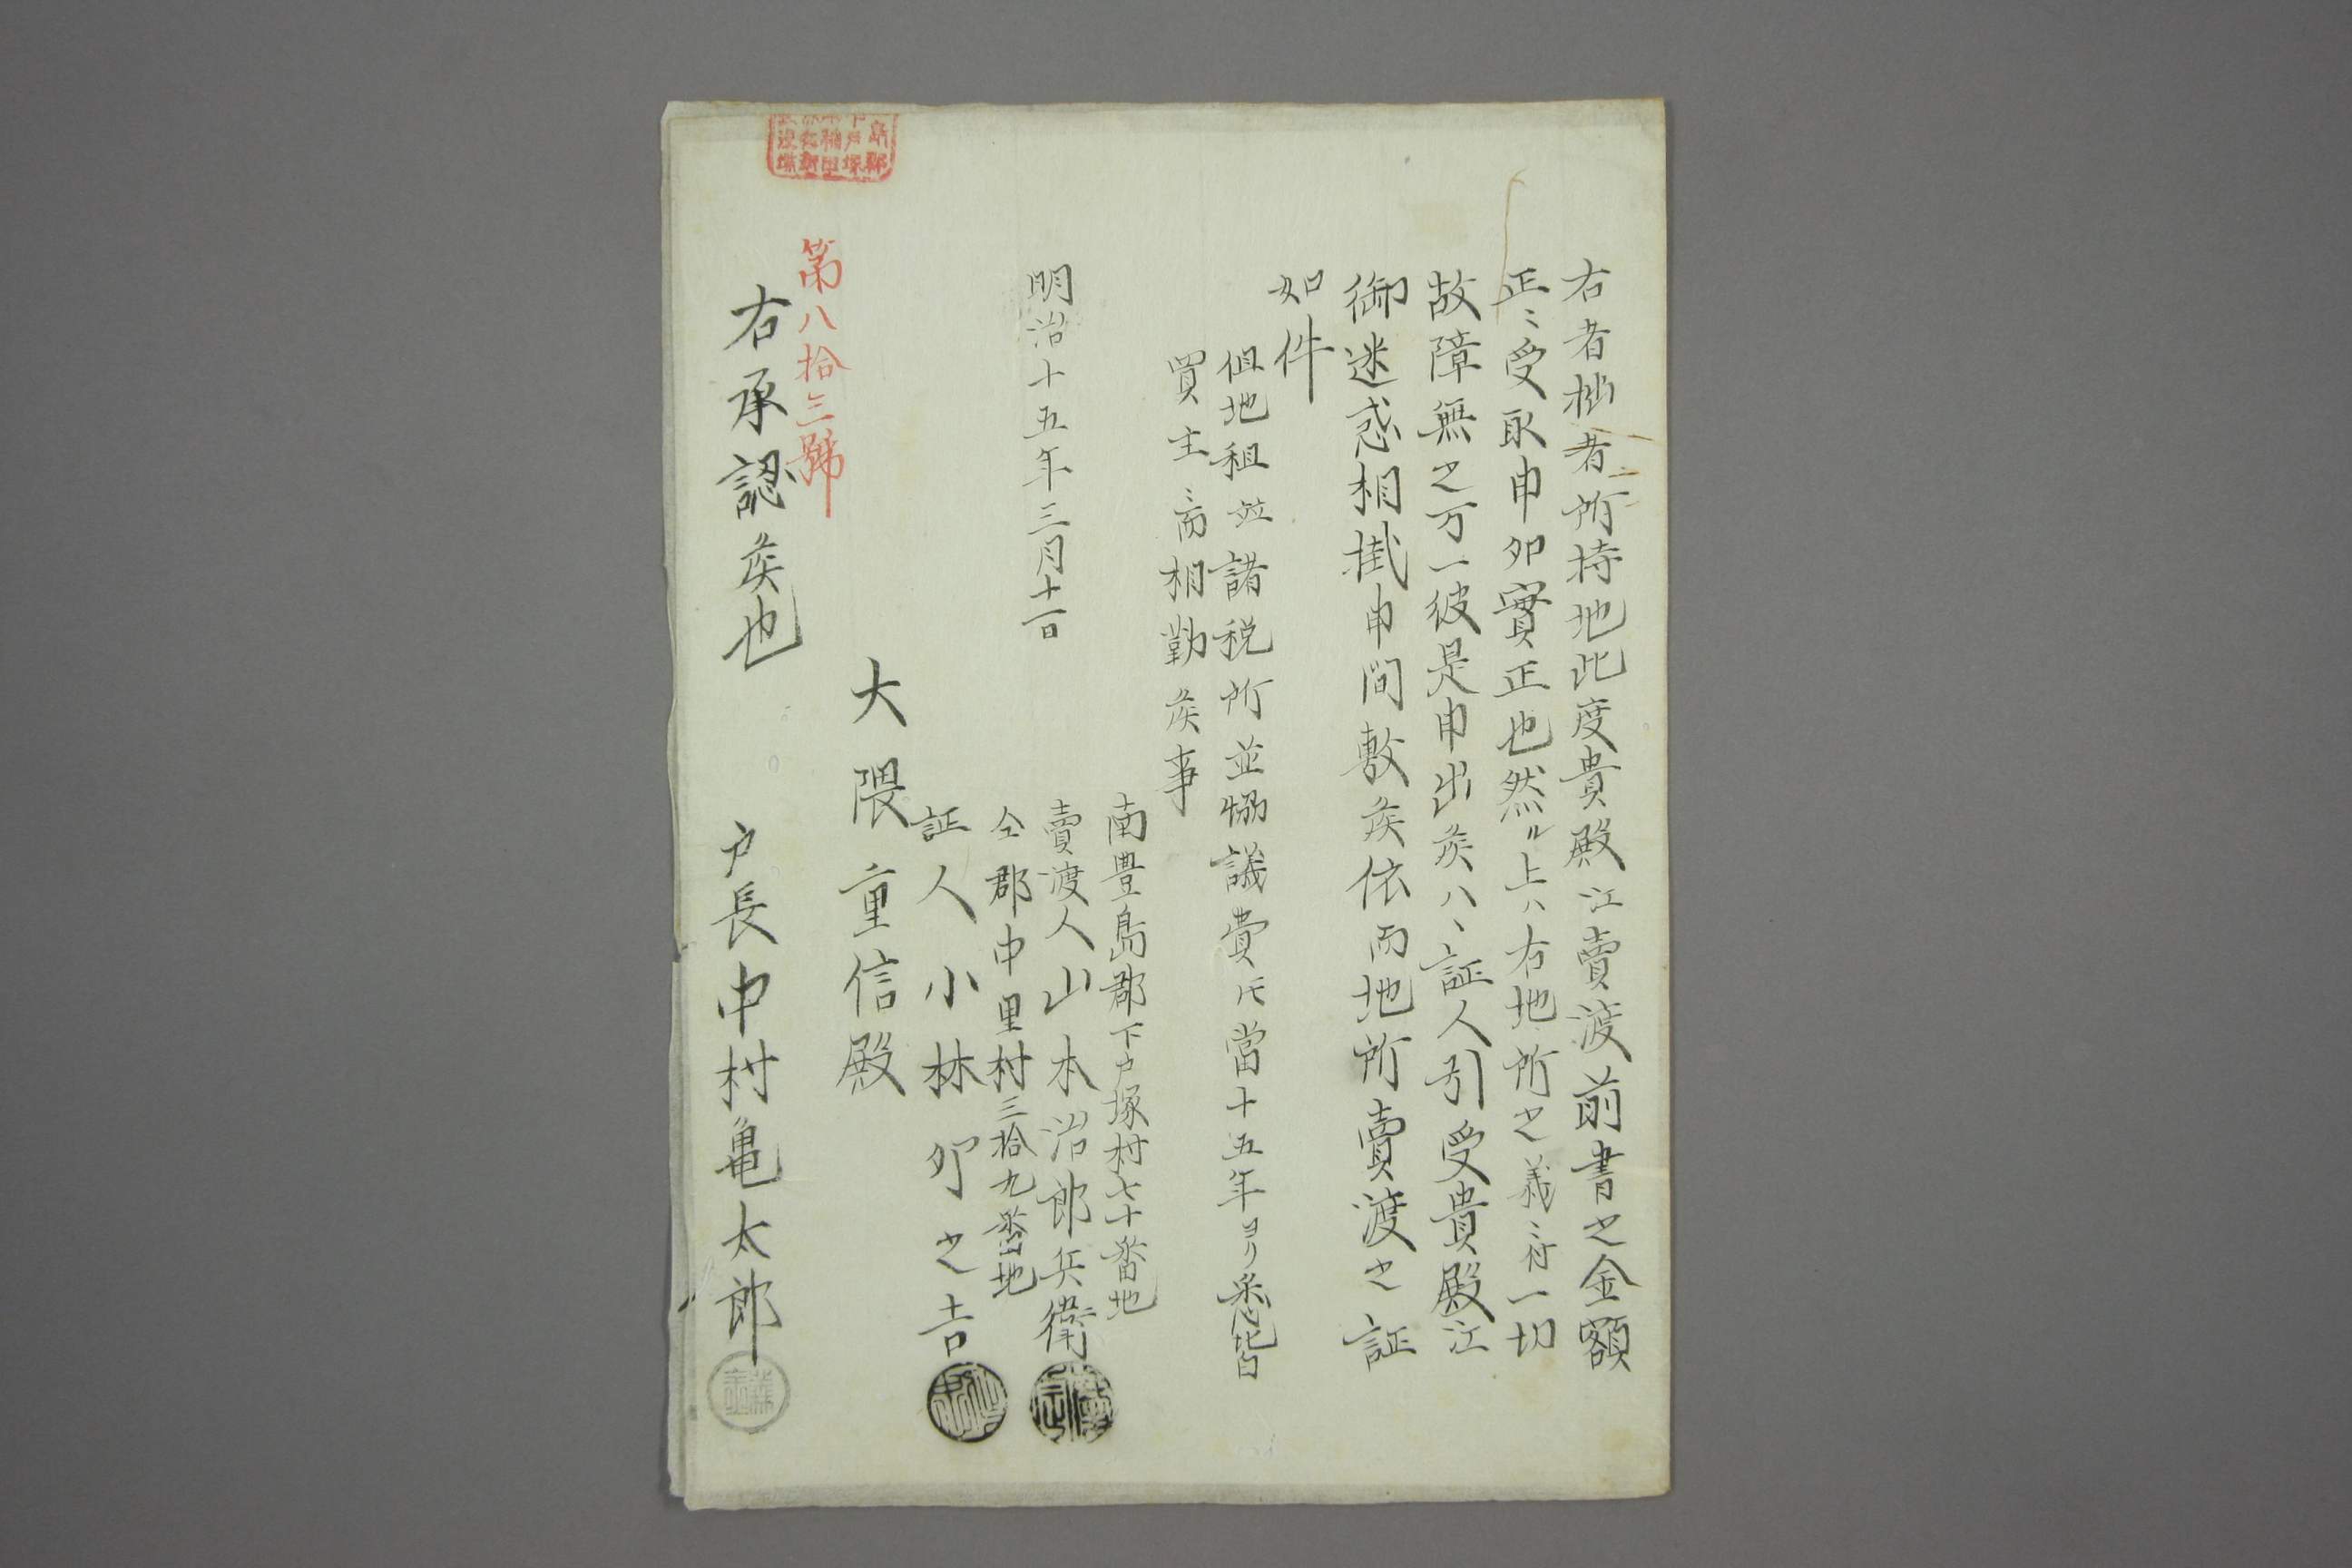 右者拙者所持地此度貴殿江賣渡前書之金額
正ニ受取申処實正也然ル上ハ右地所之義ニ付一切
故障無之万一彼是申出候ハヽ証人引受貴殿江
御迷惑相掛申間敷候依而地所賣渡之証
如件
但地租並諸税所並協議費圧當十五年ヨリ悉皆
買主ニ而相勤候事
南豊島郡下戸塚村七十番地
明治十五年三月十一日
賣渡人山本治郎兵衛
仝郡中里村三拾九番地
証人小林卯之吉
大隈重信殿
第八拾三號
右承認候也
戸長中村亀太郎